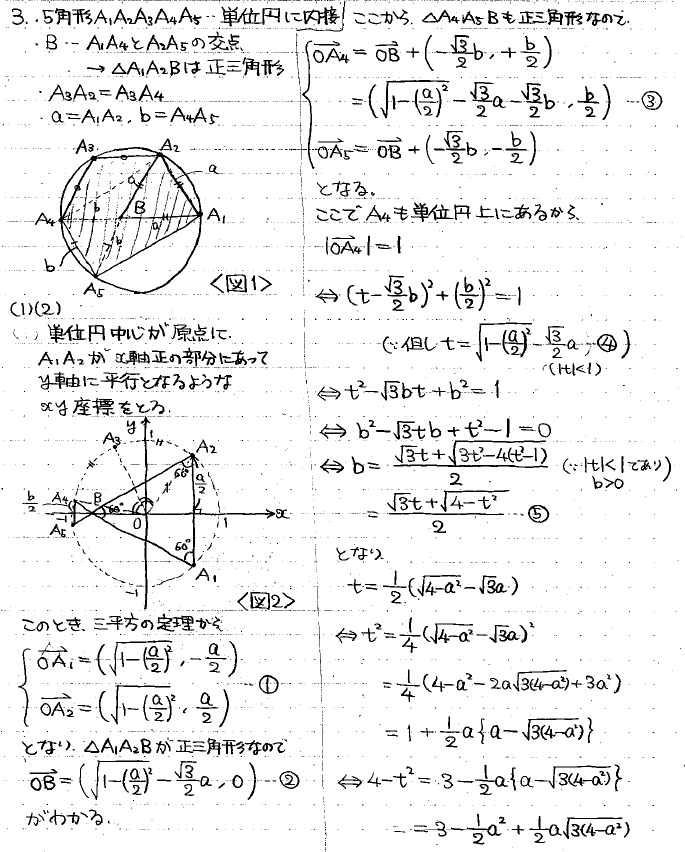 3. ・5角形A₁A₂A₃A₄A₅…単位円に内接
・B…A₁A₄とA₂A₅の交点
→△A₁A₂Bは正三角形
・A₃A₂=A₃A₄
・a=A₁A₂, b=A₄A₅
A₃ A₂ a
A₄ B A₁
a b
b A₅ <図1>
(1)(2)
単位円中心が原点に、
A₁A₂がx軸正の部分にあって
y軸に平行となるような
xy座標をとる。
y
A₃ 1 A₂
60° a/2
b/2 A₄ B 60° 0 1 x
-1 A₅ 60°
A₁
-1 <図2>
このとき、三平方の定理から
OA₁=(√(1-(a/2)²), -a/2)
OA₂=(√(1-(a/2)²), a/2) …①
となり、△A₁A₂Bが正三角形なので
OB=(√(1-(a/2)²)-(√3/2)a, 0) …②
がわかる。
ここから、△A₄A₅Bも正三角形なので
OA₄=OB+(-(√3/2)b, +b/2)
=(√(1-(a/2)²)-(√3/2)a-(√3/2)b, b/2) …③
OA₅=OB+(-(√3/2)b, -b/2)
となる。
ここでA₄も単位円上にあるから、
|OA₄|=1
⇔(t-(√3/2)b)²+(b/2)²=1
(∵但しt=√(1-(a/2)²)-(√3/2)a …④)
(|t|<1)
⇔t²-√3bt+b²=1
⇔b²-√3tb+t²-1=0
⇔b=(√3t+√(3t²-4(t²-1)))/2 (∵|t|<1であり b>0)
=(√3t+√(4-t²))/2 …⑤
となり、
t=1/2(√(4-a²)-√3a)
⇔t²=1/4(√(4-a²)-√3a)²
=1/4(4-a²-2a√(3(4-a²))+3a²)
=1+1/2a{a-√(3(4-a²))}
⇔4-t²=3-1/2a{a-√(3(4-a²))}
=3-1/2a²+1/2a√(3(4-a²))